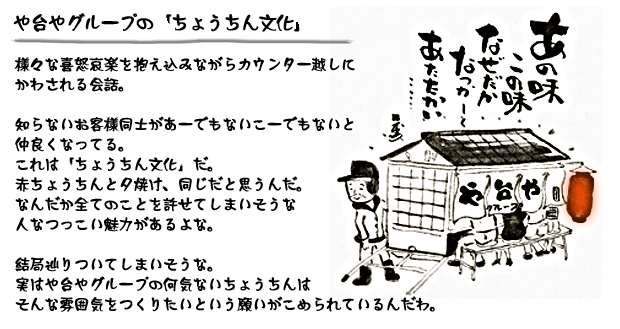 や台やグループの「ちょうちん文化」
様々な喜怒哀楽を抱え込みながらカウンター越しに
かわされる会話。
知らないお客様同士があーでもないこーでもないと
仲良くなってる。
これは「ちょうちん文化」だ。
赤ちょうちんと夕焼け、同じだと思うんだ。
なんだか全てのことを許せてしまいそうな
人なつっこい魅力があるよな。
結局辿りついてしまいそうな。
実はや台やグループの何気ないちょうちんは
そんな雰囲気をつくりたいという願いがこめられているんだわ。
あの味
この味
なぜだか
なつかしく
あたたかい
や台や
グループ